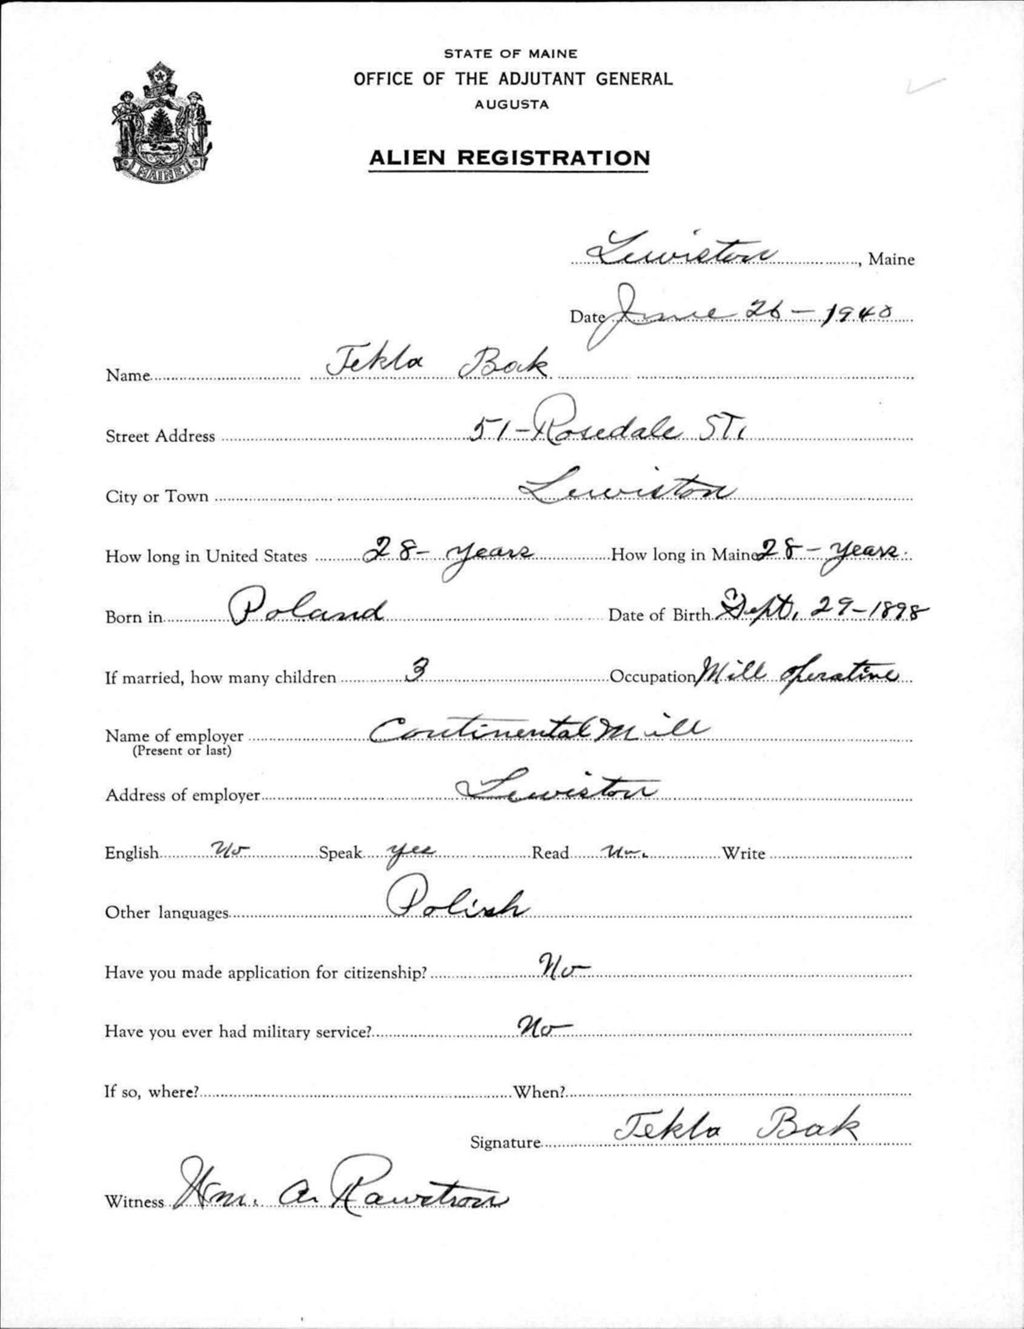 STATE OF MAINE
OFFICE OF THE ADJUTANT GENERAL
AUGUSTA
ALIEN REGISTRATION
MAINE
Lewiston, Maine
Date June 26-1940
Name Tekla Bak
Street Address 51-Rosedale ST.
City or Town Lewiston
How long in United States 28-years How long in Maine 28-years.
Born in Poland Date of Birth Sept, 29-1898
If married, how many children 3 Occupation Mill operative
Name of employer Continental Mill
(Present or last)
Address of employer Lewiston
English No Speak yes Read No. Write
Other languages Polish
Have you made application for citizenship? No
Have you ever had military service? No
If so, where? When?
Signature Tekla Bak
Witness Wm. A. Rawstron